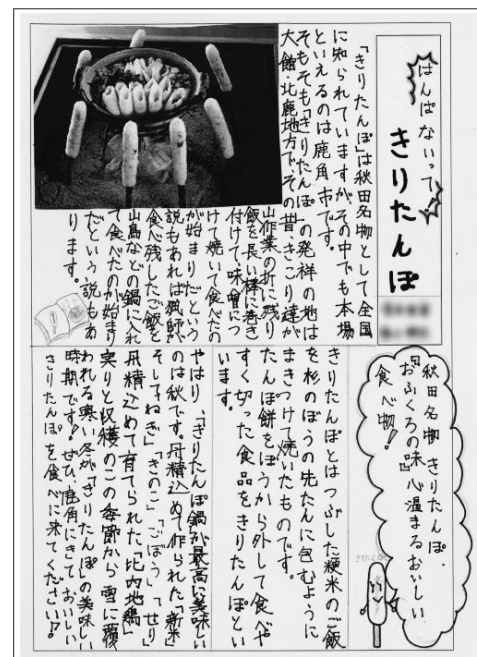 はんぱないって!
きりたんぽ
「きりたんぽ」は秋田名物として全国
に知られていますが、その中でも本場
といえるのは鹿角市です。
そもそも「きりたんぽ」の発祥の地は
大館・北鹿地方で、その昔、きこり達が
山作業の折に残り
飯を長い棒に巻き
付けて味噌につ
けて焼いて食べたの
が始まりだという
説もあれば猟師が
食べ残したご飯を
山鳥などの鍋に入れ
て食べたのが始まり
だという説もあ
ります。
秋田名物きりたんぽ・
『おふくろの味』心温まるおいしい
食べ物!
きりたんぽ
きりたんぽとはつぶした粳米のご飯
を杉のぼうの先たんに包むように
まきつけて焼いたものです。
たんぽ餅をぼうから外して食べや
すく切った食品をきりたんぽとい
います。
やはり、「きりたんぽ鍋」が最高に美味しい
のは秋です。丹精込めて作られた「新米」
そして「ねぎ」「きのこ」「ごぼう」「せり」
丹精込めて育てられた「比内地鶏」
実りと収穫のこの季節から雪に覆
われる寒い冬が「きりたんぽ」の美味しい
時期です!ぜひ、鹿角にきておいしい
きりたんぽを食べに来てください!?